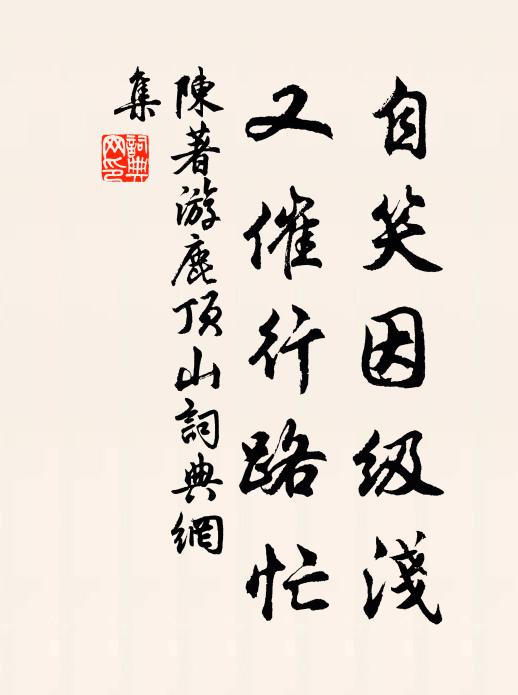 自笑因級淺
又催行路忙
陳著游鹿頂山詞典網
集
詞典
網印